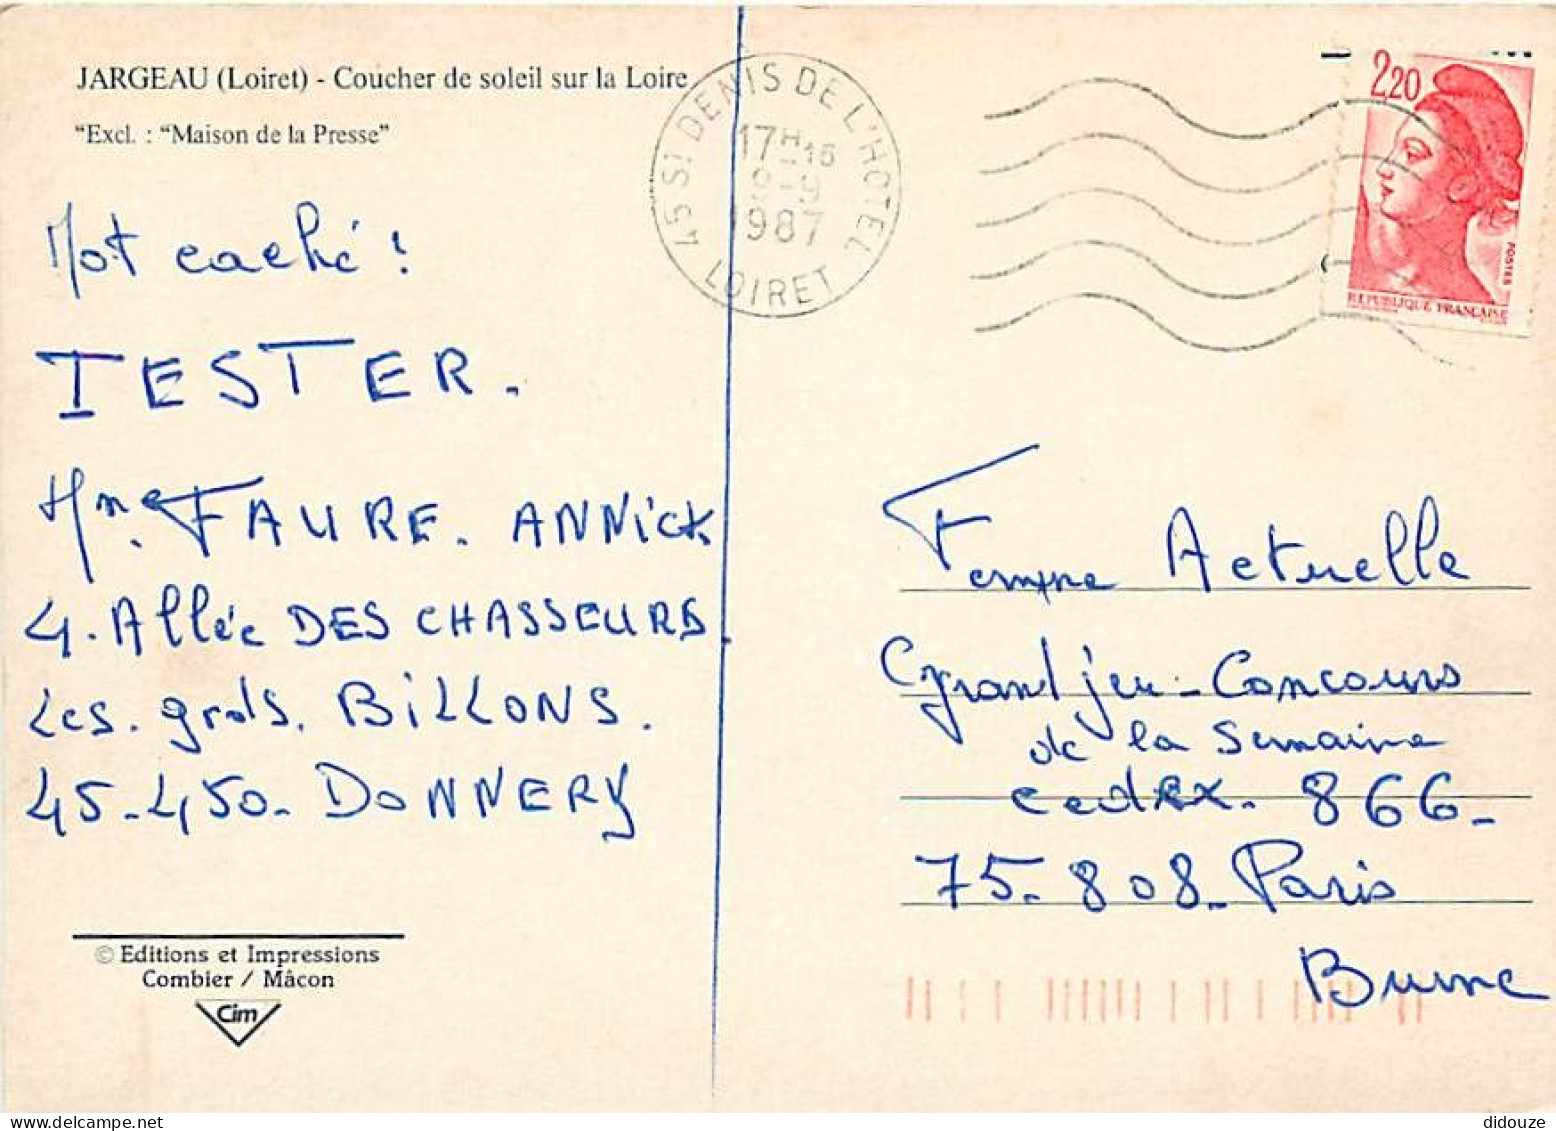 JARGEAU (Loiret) - Coucher de soleil sur la Loire
"Excl. : "Maison de la Presse"
Mot caché :
TESTER.
Mme. FAURE. ANNICK
4. Allée DES CHASSEURS.
Les. gros. BILLONS.
45-450- DONNERY
© Editions et Impressions
Combier / Mâcon
Cim
45 ST DENIS DE L'HOTEL
17H15
9-9
1987
LOIRET
2,20
POSTES
REPUBLIQUE FRANÇAISE
Femme Actuelle
Grand jeu-Concours
de la Semaine
cedex. 866-
75-808-Paris
Brune
didouze